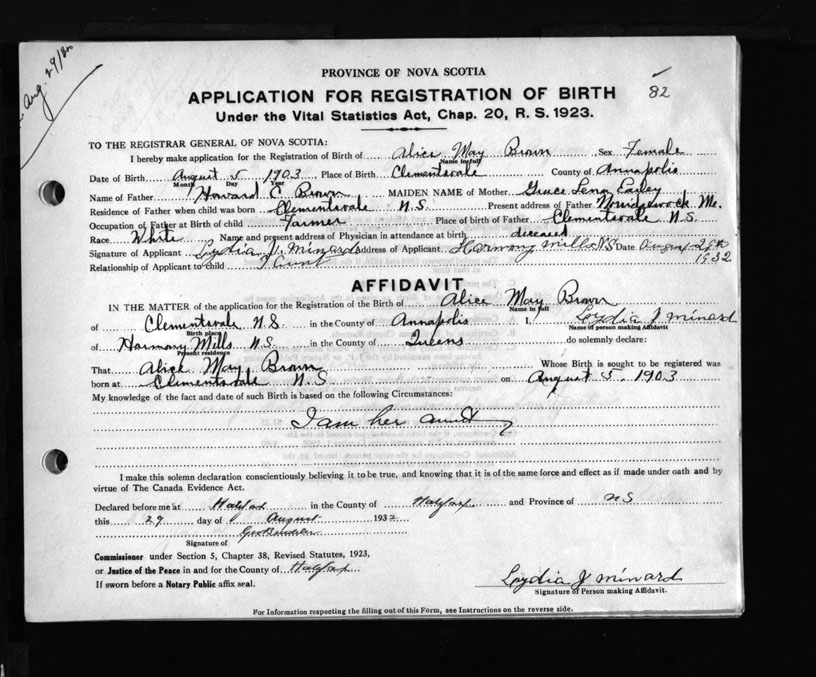 Aug. 29/32
PROVINCE OF NOVA SCOTIA
APPLICATION FOR REGISTRATION OF BIRTH
82
Under the Vital Statistics Act, Chap. 20, R. S. 1923.
TO THE REGISTRAR GENERAL OF NOVA SCOTIA:
I hereby make application for the Registration of Birth of Alice May Brown Sex Female
Name in full
Date of Birth August 5 1903 Place of Birth Clementsvale County of Annapolis
Month Day Year
Name of Father Howard E Brown MAIDEN NAME of Mother Grace Lena
Residence of Father when child was born Clementsvale N.S. Present address of Father Norridgewock Me.
Occupation of Father at Birth of child Farmer Place of birth of Father Clementsvale N.S.
Race White Name and present address of Physician in attendance at birth diseased
Signature of Applicant Lydia J. Minard Address of Applicant Harmony Mills N.S Date August 29th
1932
Relationship of Applicant to child Aunt
AFFIDAVIT
IN THE MATTER of the application for the Registration of the Birth of Alice May Brown
Name in full
of Clementsvale N.S. in the County of Annapolis I, Lydia J Minard
Birth place Name of person making Affidavit
of Harmony Mills N.S. in the County of Queens do solemnly declare:
Present residence
That Alice May Brown Whose Birth is sought to be registered was
born at Clementsvale N.S on August 5. 1903
My knowledge of the fact and date of such Birth is based on the following Circumstances:
I am her aunt
I make this solemn declaration conscientiously believing it to be true, and knowing that it is of the same force and effect as if made under oath and by
virtue of The Canada Evidence Act.
Declared before me at Halifax in the County of Halifax and Province of N S
this 29 day of August 1932
Signature of
Commissioner under Section 5, Chapter 38, Revised Statutes, 1923,
or Justice of the Peace in and for the County of Halifax
If sworn before a Notary Public affix seal.
Lydia J Minard
Signature of Person making Affidavit.
For Information respecting the filling out of this Form, see Instructions on the reverse side.